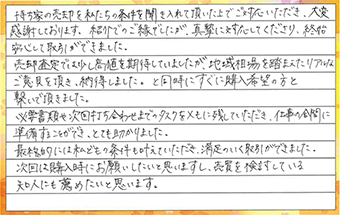 持ち家の売却を私たちの条件を聞き入れて頂いた上でご対応いただき、大変
感謝しております。紹介でのご縁でしたが、真摯に対応してくださり、終始
安心して取引ができました。
売却査定では少し高値を期待していましたが地域相場を踏まえたリアルな
ご意見を頂き、納得しました。と同時にすぐに購入希望の方と
繋いで頂きました。
必要書類や次回打ち合わせまでのタスクをメモに残していただき、仕事の合間に
準備することができ、とても助かりました。
最終的には私どもの条件も叶えていただき、満足のいく取引ができました。
次回は購入時にお願いしたいと思いますし、売買を検討している
知人にも薦めたいと思います。